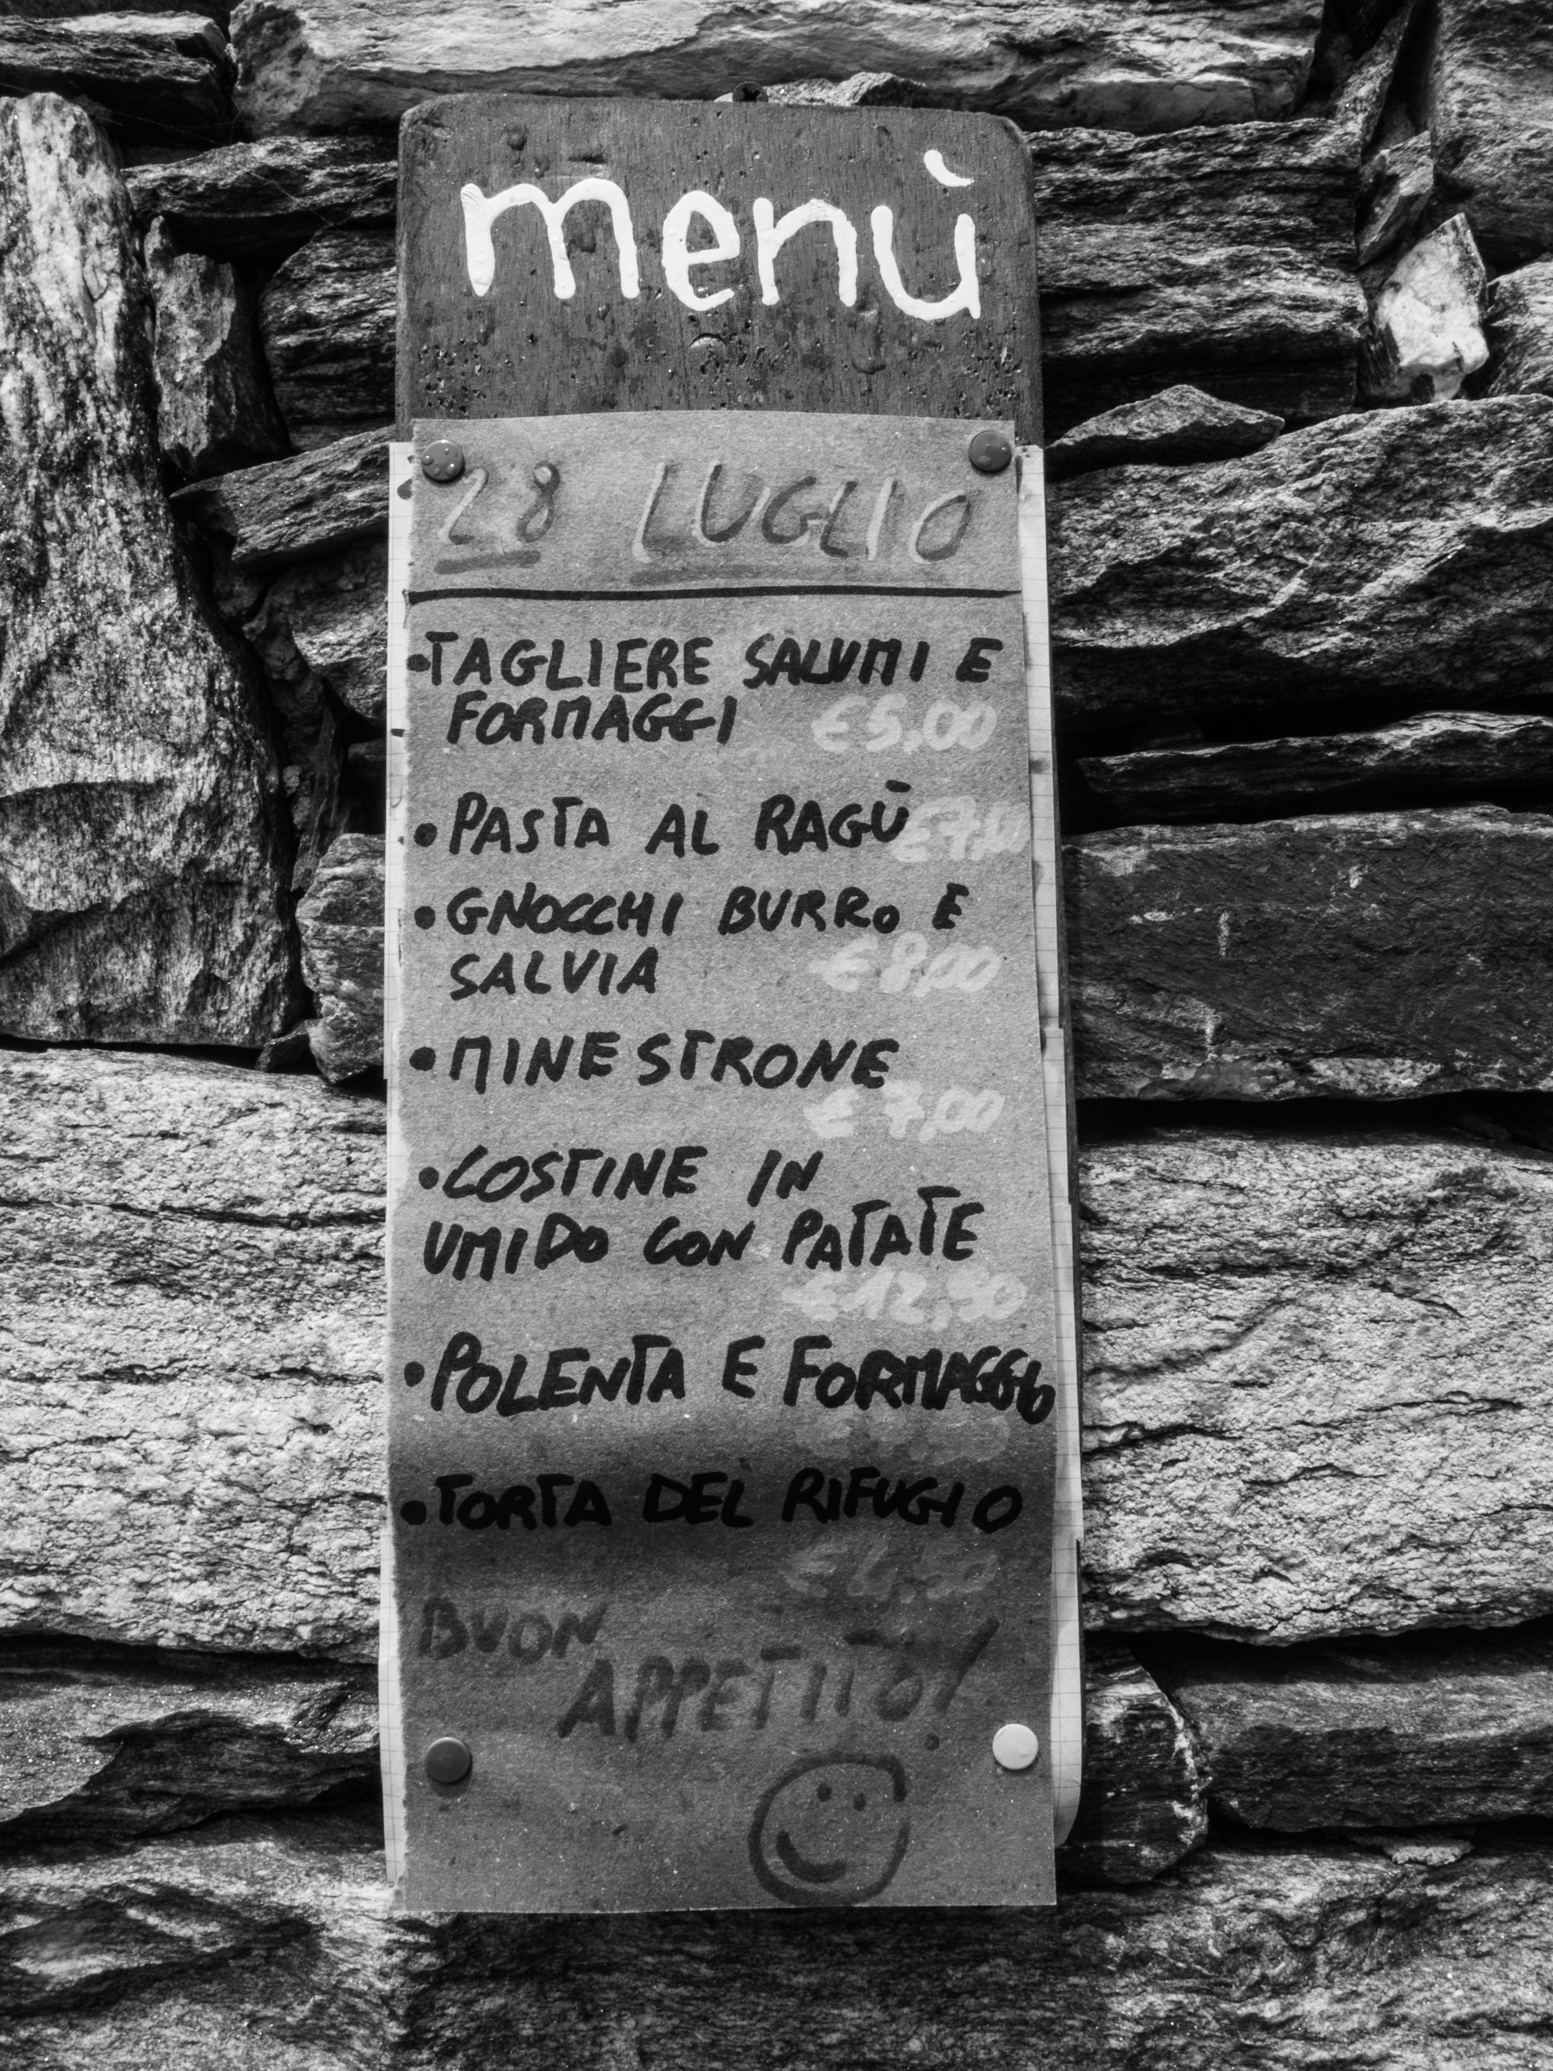 menù
28 LUGLIO
•TAGLIERE SALUMI E
FORMAGGI €5,00
•PASTA AL RAGÙ
•GNOCCHI BURRO E
SALVIA €8,00
•MINESTRONE
€7,00
•COSTINE IN
UMIDO CON PATATE
€12,50
•POLENTA E FORMAGGIO
•TORTA DEL RIFUGIO
BUON
APPETITO!